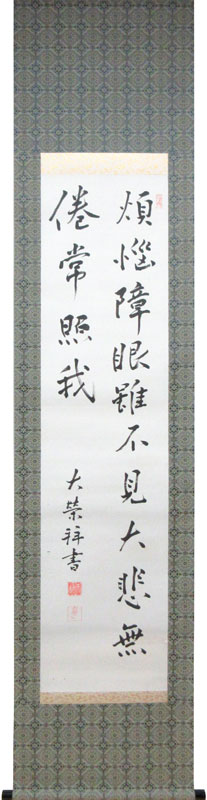 煩惱障眼雖不見大悲無
倦常照我
大榮祥書